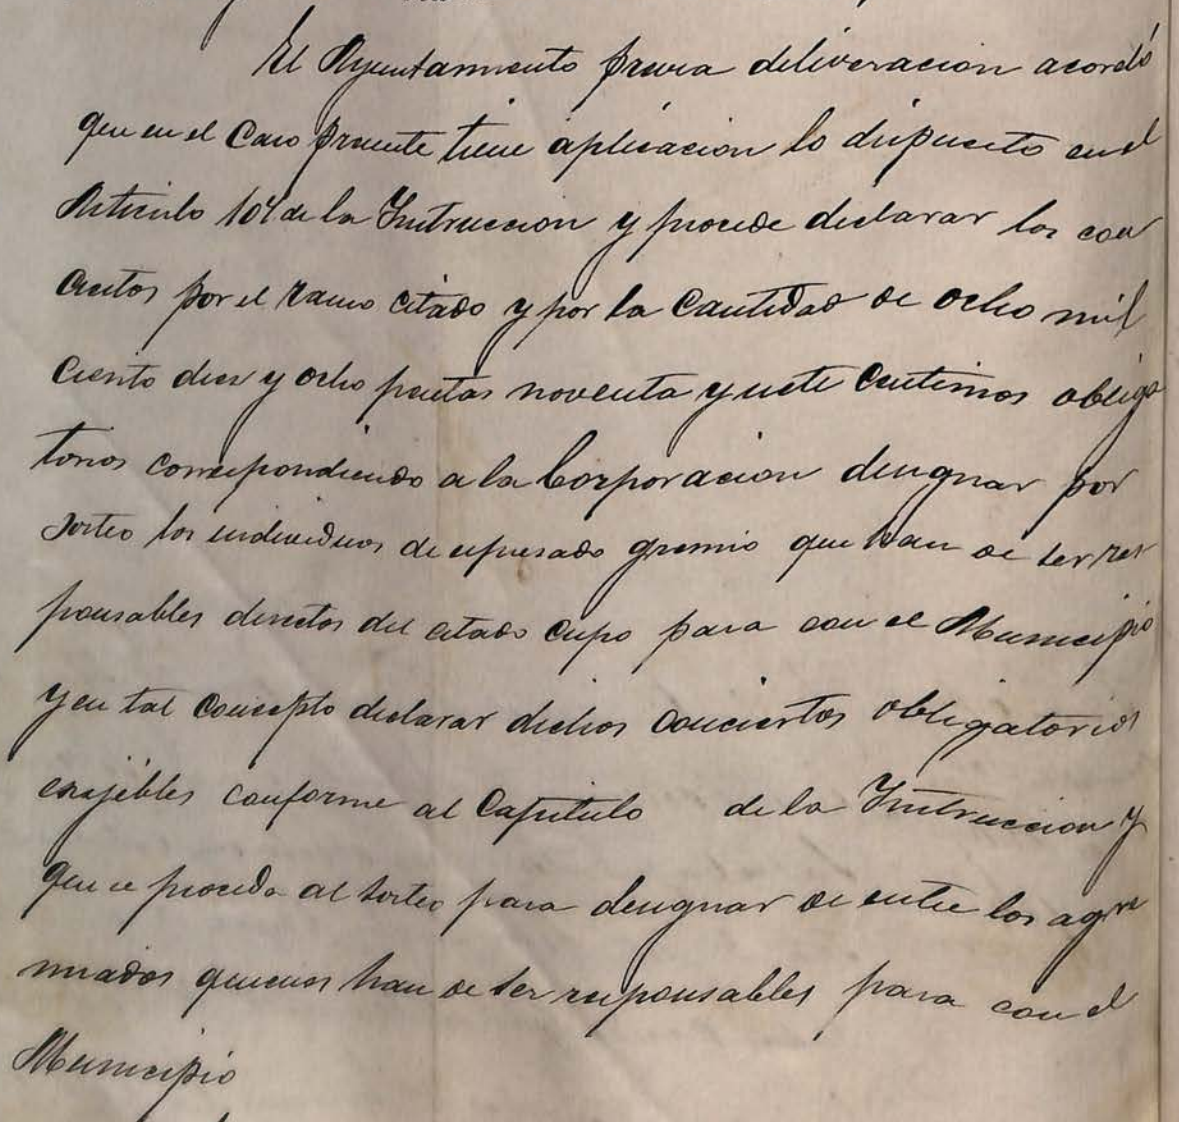 El Ayuntamiento previa deliveracion acordó
que en el Caso presente tiene aplicacion lo dispuesto en el
Articulo 104 de la Instruccion y procede declarar los con
ciertos por el ramo citado y por la Cantidad de ocho mil
ciento diez y ocho pesetas noventa y siete Centimos obliga
torios correspondiendo a la Corporacion designar por
sorteo los individuos de espresado gremio que han de ser res
ponsables directos del citado cupo para con el Municipio
y en tal concepto declarar dichos conciertos obligatorios
exajibles conforme al Capitulo de la Instruccion y
que se proceda al sorteo para designar de entre los agre
miados quienes han de ser responsables para con el
Municipio